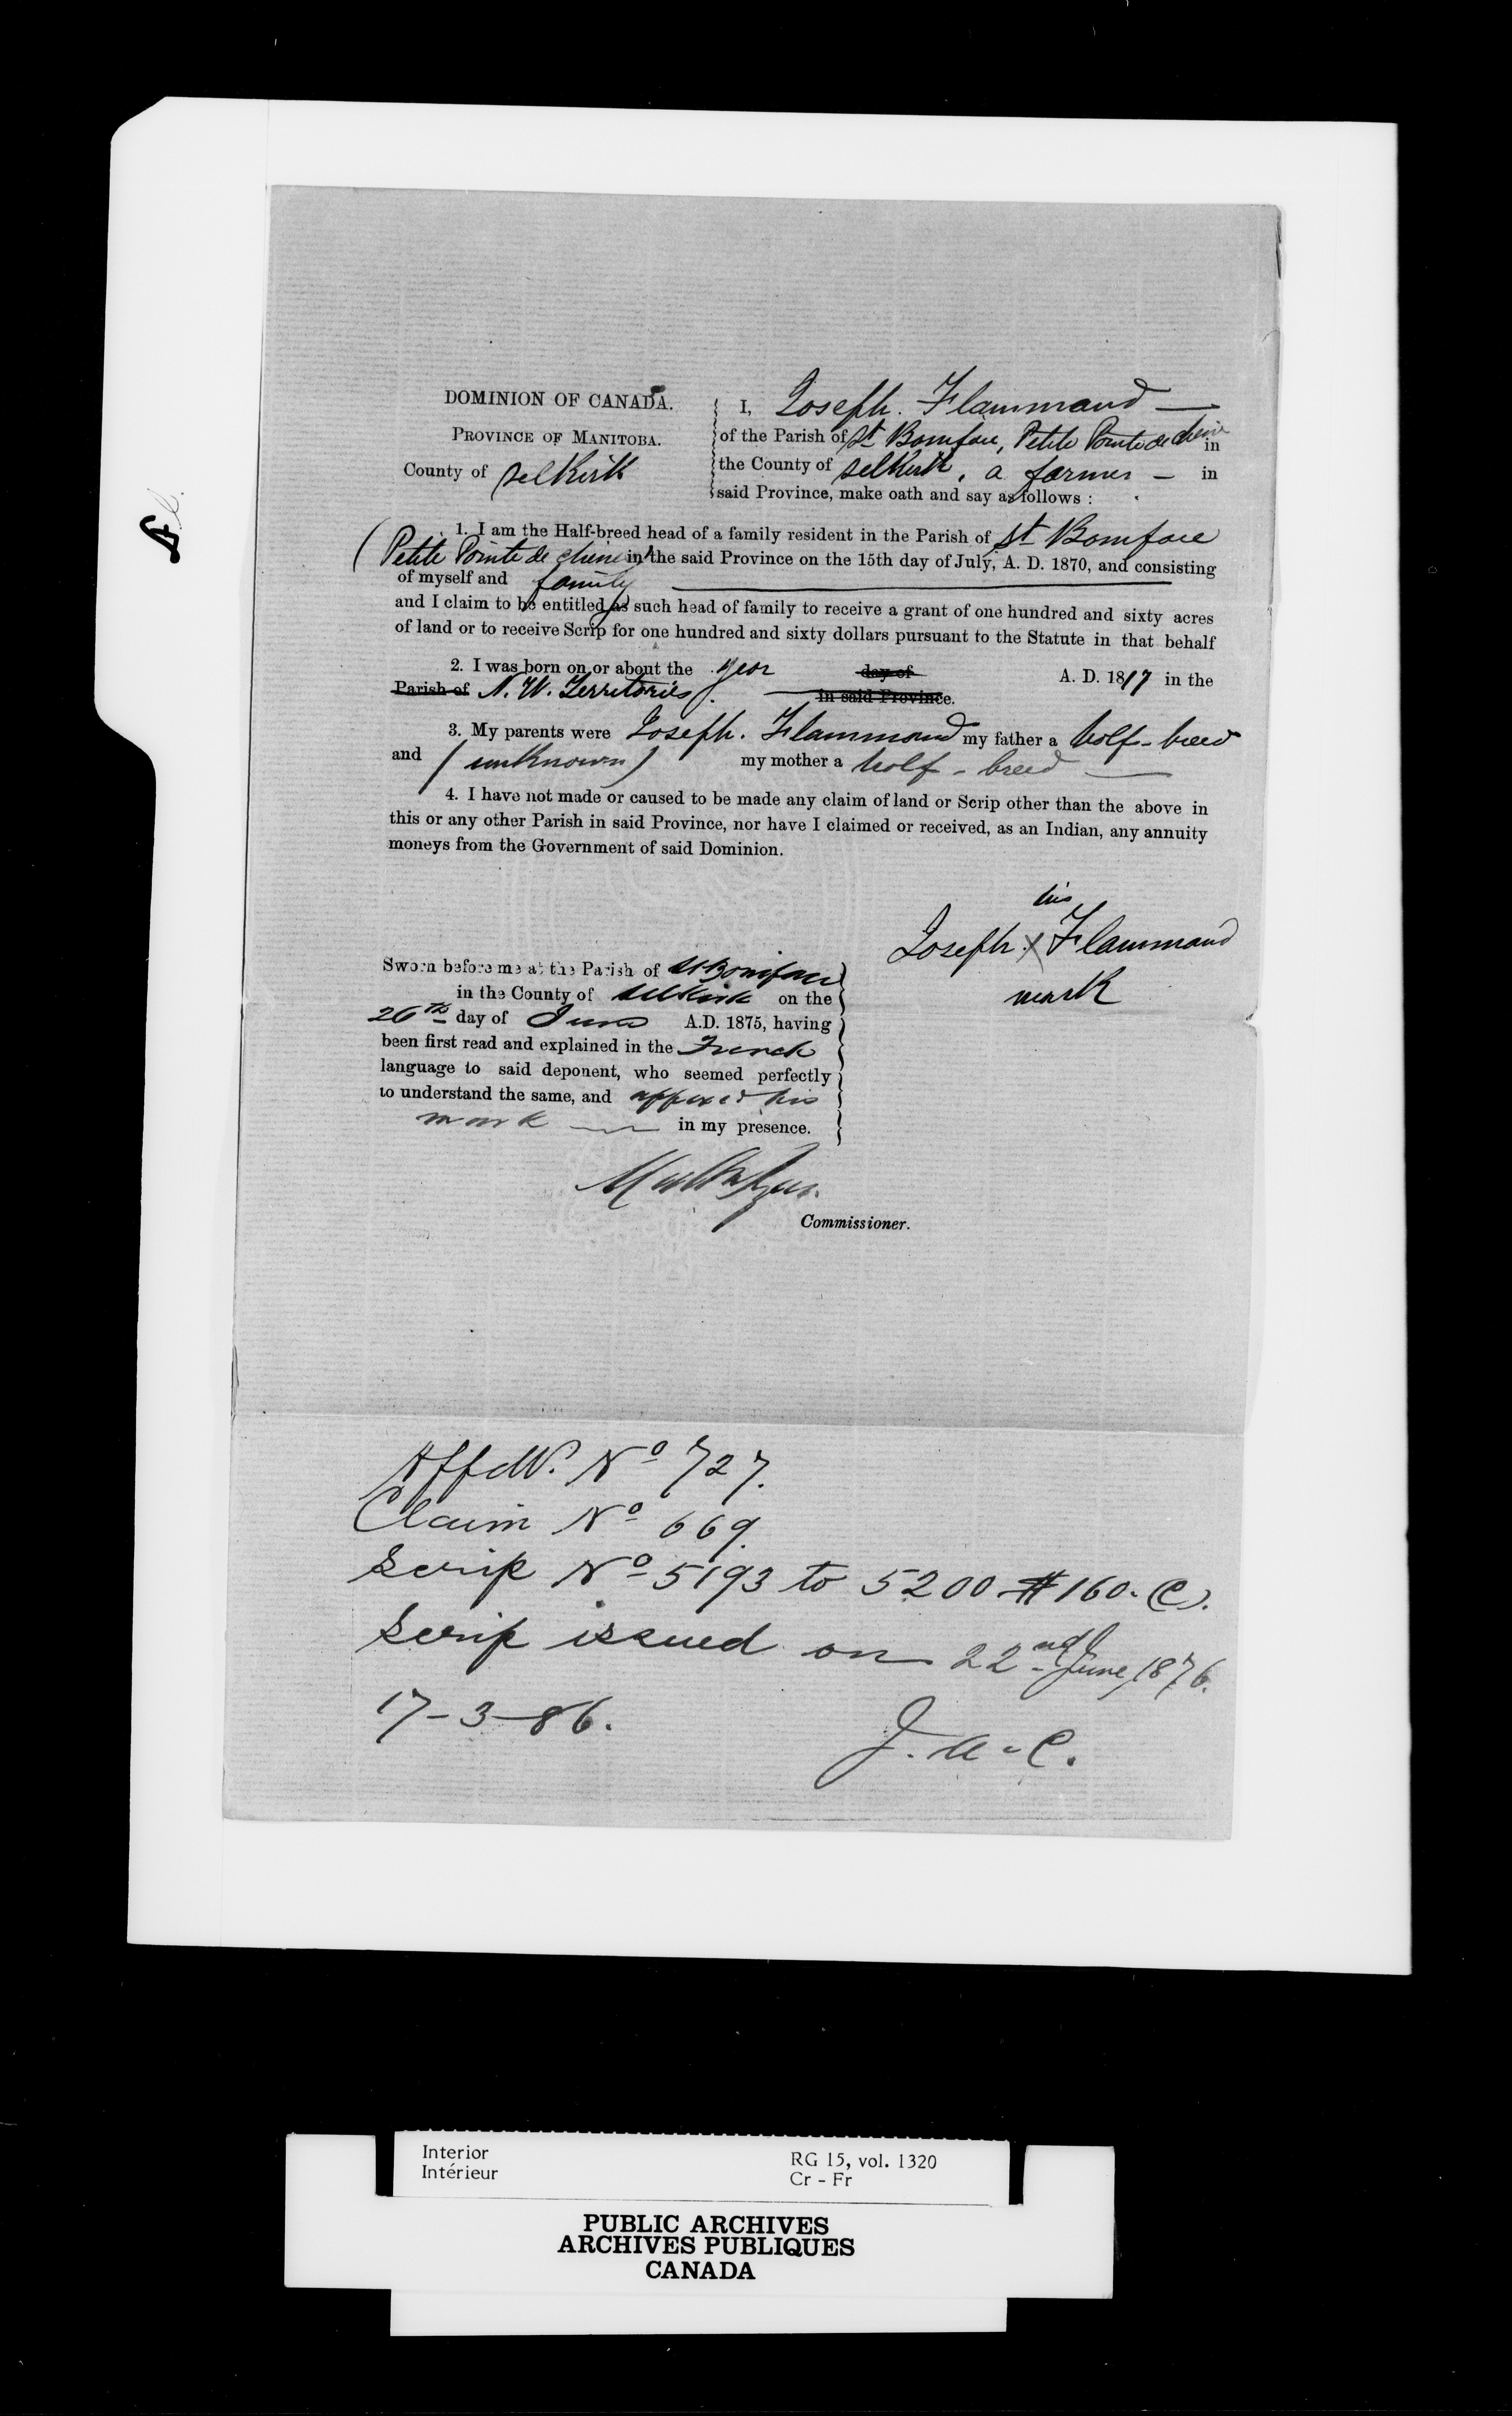 DOMINION OF CANADA.
PROVINCE OF MANITOBA.
County of Selkirk
I, Joseph. Flammand —
of the Parish of St Boniface, Petite Pointe de chene in
the County of Selkirk, a farmer — in
said Province, make oath and say as follows :
1. I am the Half-breed head of a family resident in the Parish of St Boniface
(Petite Pointe de chene) in the said Province on the 15th day of July, A. D. 1870, and consisting
of myself and family
and I claim to be entitled as such head of family to receive a grant of one hundred and sixty acres
of land or to receive Scrip for one hundred and sixty dollars pursuant to the Statute in that behalf
2. I was born on or about the year day of A. D. 1817 in the
Parish of N. W. Territories. in said Province.
3. My parents were Joseph. Flammand my father a half-breed
and (unknown) my mother a half-breed —
4. I have not made or caused to be made any claim of land or Scrip other than the above in
this or any other Parish in said Province, nor have I claimed or received, as an Indian, any annuity
moneys from the Government of said Dominion.
his
Joseph X Flammand
mark
Sworn before me at the Parish of St Boniface
in the County of Selkirk on the
26th day of June A.D. 1875, having
been first read and explained in the French
language to said deponent, who seemed perfectly
to understand the same, and affixed his
mark — in my presence.
Commissioner.
Affdvt. No 727.
Claim No 669.
Scrip No 5193 to 5200 $160. (C).
Scrip issued on 22nd June, 1876.
17-3-86.
J. A. C.
Interior
Intérieur
RG 15, vol. 1320
Cr - Fr
PUBLIC ARCHIVES
ARCHIVES PUBLIQUES
CANADA